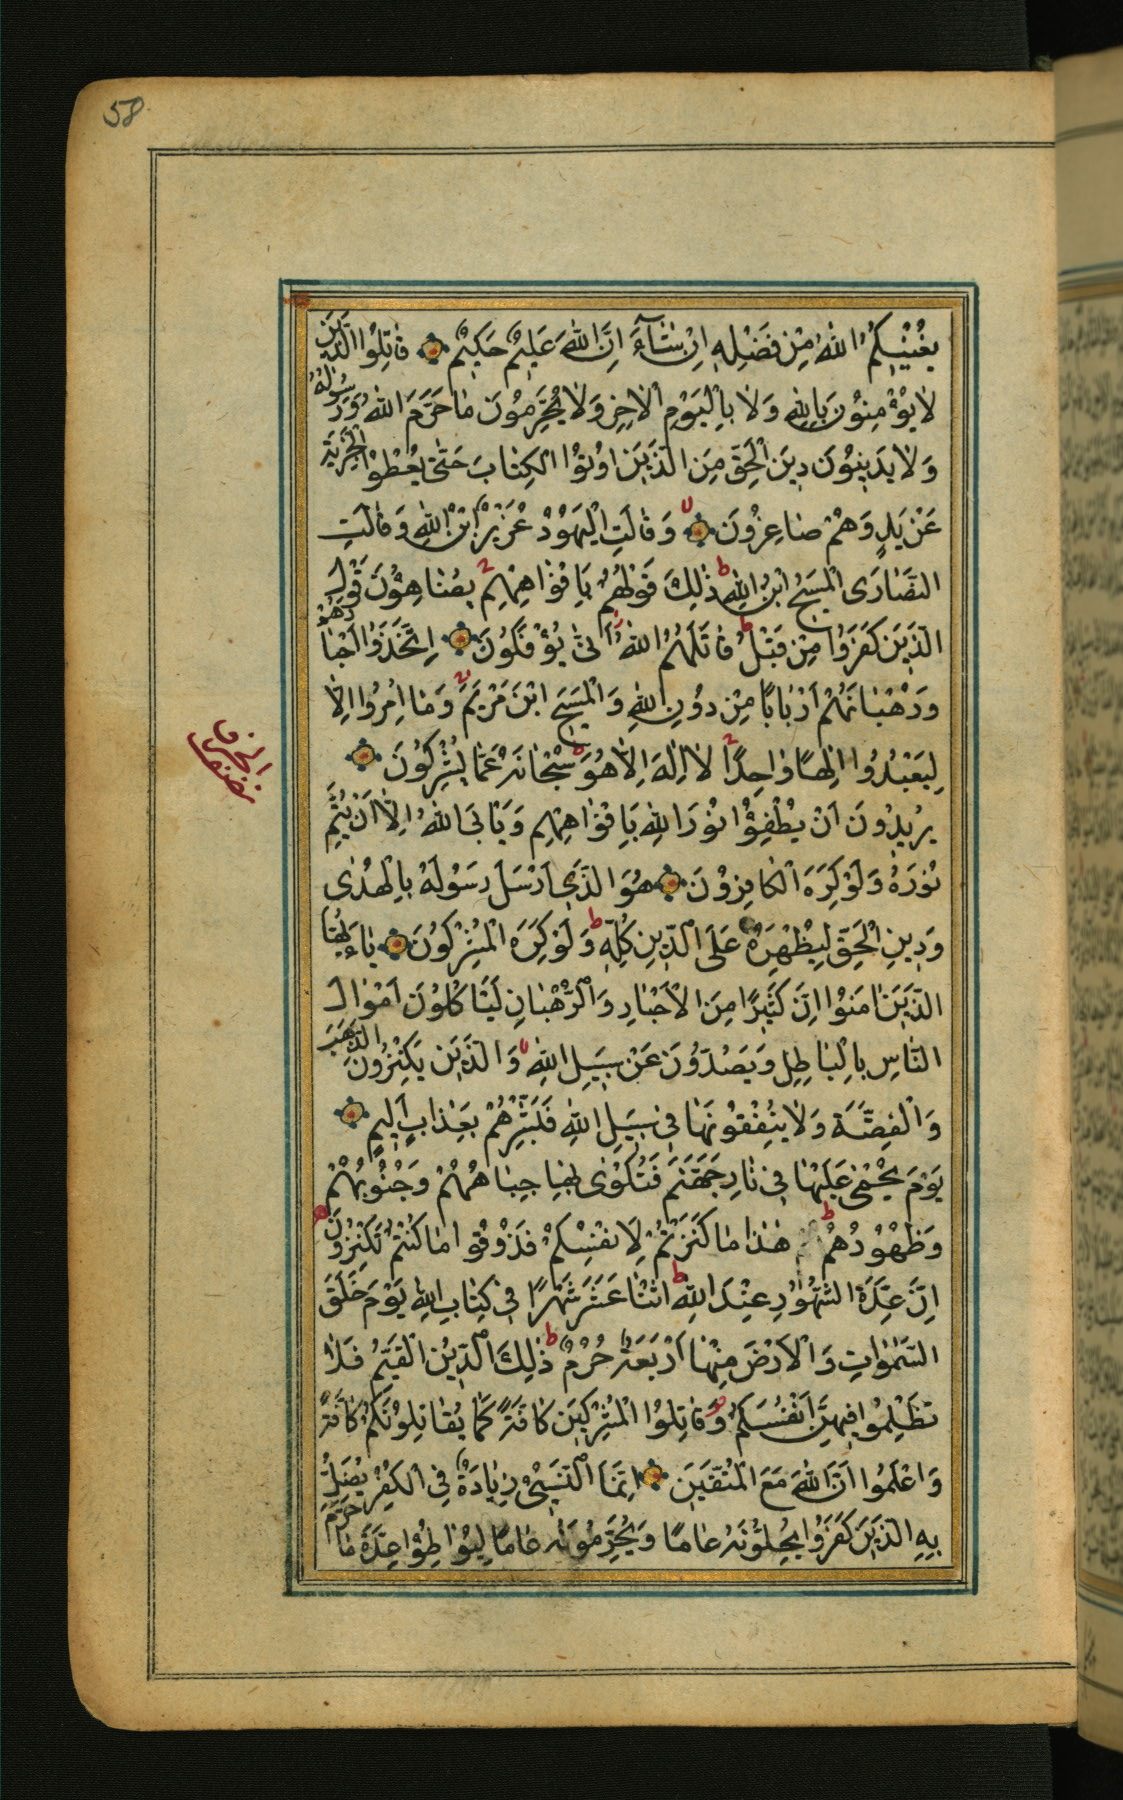 58
يُغْنِيكُمُ اللهُ مِنْ فَضْلِهِ اِنْ شَآءَ اِنَّ اللهَ عَلِيمٌ حَكِيمٌ قَاتِلُوا الَّذِينَ
لَا يُؤْمِنُونَ بِاللهِ وَلَا بِالْيَوْمِ الْاٰخِرِ وَلَا يُحَرِّمُونَ مَا حَرَّمَ اللهُ وَرَسُولُهُ
وَلَا يَدِينُونَ دِينَ الْحَقِّ مِنَ الَّذِينَ اُوتُوا الْكِتَابَ حَتّٰى يُعْطُوا الْجِزْيَةَ
عَنْ يَدٍ وَهُمْ صَاغِرُونَ وَقَالَتِ الْيَهُودُ عُزَيْرٌ ابْنُ اللهِ وَقَالَتِ
النَّصَارَى الْمَسِيحُ ابْنُ اللهِ ذٰلِكَ قَوْلُهُمْ بِاَفْوَاهِهِمْ يُضَاهِؤُنَ قَوْلَ
الَّذِينَ كَفَرُوا مِنْ قَبْلُ قَاتَلَهُمُ اللهُ اَنّٰى يُؤْفَكُونَ اِتَّخَذُوا اَحْبَارَهُمْ
وَرُهْبَانَهُمْ اَرْبَابًا مِنْ دُونِ اللهِ وَالْمَسِيحَ ابْنَ مَرْيَمَ وَمَا اُمِرُوا اِلَّا
لِيَعْبُدُوا اِلٰهًا وَاحِدًا لَا اِلٰهَ اِلَّا هُوَ سُبْحَانَهُ عَمَّا يُشْرِكُونَ
يُرِيدُونَ اَنْ يُطْفِؤُا نُورَ اللهِ بِاَفْوَاهِهِمْ وَيَاْبَى اللهُ اِلَّا اَنْ يُتِمَّ
نُورَهُ وَلَوْ كَرِهَ الْكَافِرُونَ هُوَ الَّذِي اَرْسَلَ رَسُولَهُ بِالْهُدٰى
وَدِينِ الْحَقِّ لِيُظْهِرَهُ عَلَى الدِّينِ كُلِّهِ وَلَوْ كَرِهَ الْمُشْرِكُونَ يَاءَيُّهَا
الَّذِينَ اٰمَنُوا اِنَّ كَثِيرًا مِنَ الْاَحْبَارِ وَالرُّهْبَانِ لَيَاْكُلُونَ اَمْوَالَ
النَّاسِ بِالْبَاطِلِ وَيَصُدُّونَ عَنْ سَبِيلِ اللهِ وَالَّذِينَ يَكْنِزُونَ الذَّهَبَ
وَالْفِضَّةَ وَلَا يُنْفِقُونَهَا فِي سَبِيلِ اللهِ فَبَشِّرْهُمْ بِعَذَابٍ اَلِيمٍ
يَوْمَ يُحْمٰى عَلَيْهَا فِي نَارِ جَهَنَّمَ فَتُكْوٰى بِهَا جِبَاهُهُمْ وَجُنُوبُهُمْ
وَظُهُورُهُمْ هٰذَا مَا كَنَزْتُمْ لِاَنْفُسِكُمْ فَذُوقُوا مَا كُنْتُمْ تَكْنِزُونَ
اِنَّ عِدَّةَ الشُّهُورِ عِنْدَ اللهِ اثْنَا عَشَرَ شَهْرًا فِي كِتَابِ اللهِ يَوْمَ خَلَقَ
السَّمٰوَاتِ وَالْاَرْضَ مِنْهَا اَرْبَعَةٌ حُرُمٌ ذٰلِكَ الدِّينُ الْقَيِّمُ فَلَا
تَظْلِمُوا فِيهِنَّ اَنْفُسَكُمْ وَقَاتِلُوا الْمُشْرِكِينَ كَافَّةً كَمَا يُقَاتِلُونَكُمْ كَافَّةً
وَاعْلَمُوا اَنَّ اللهَ مَعَ الْمُتَّقِينَ اِنَّمَا النَّسِيٓءُ زِيَادَةٌ فِي الْكُفْرِ يُضَلُّ
بِهِ الَّذِينَ كَفَرُوا يُحِلُّونَهُ عَامًا وَيُحَرِّمُونَهُ عَامًا لِيُوَاطِؤُا عِدَّةَ مَا حَرَّمَ
نصف الحزب